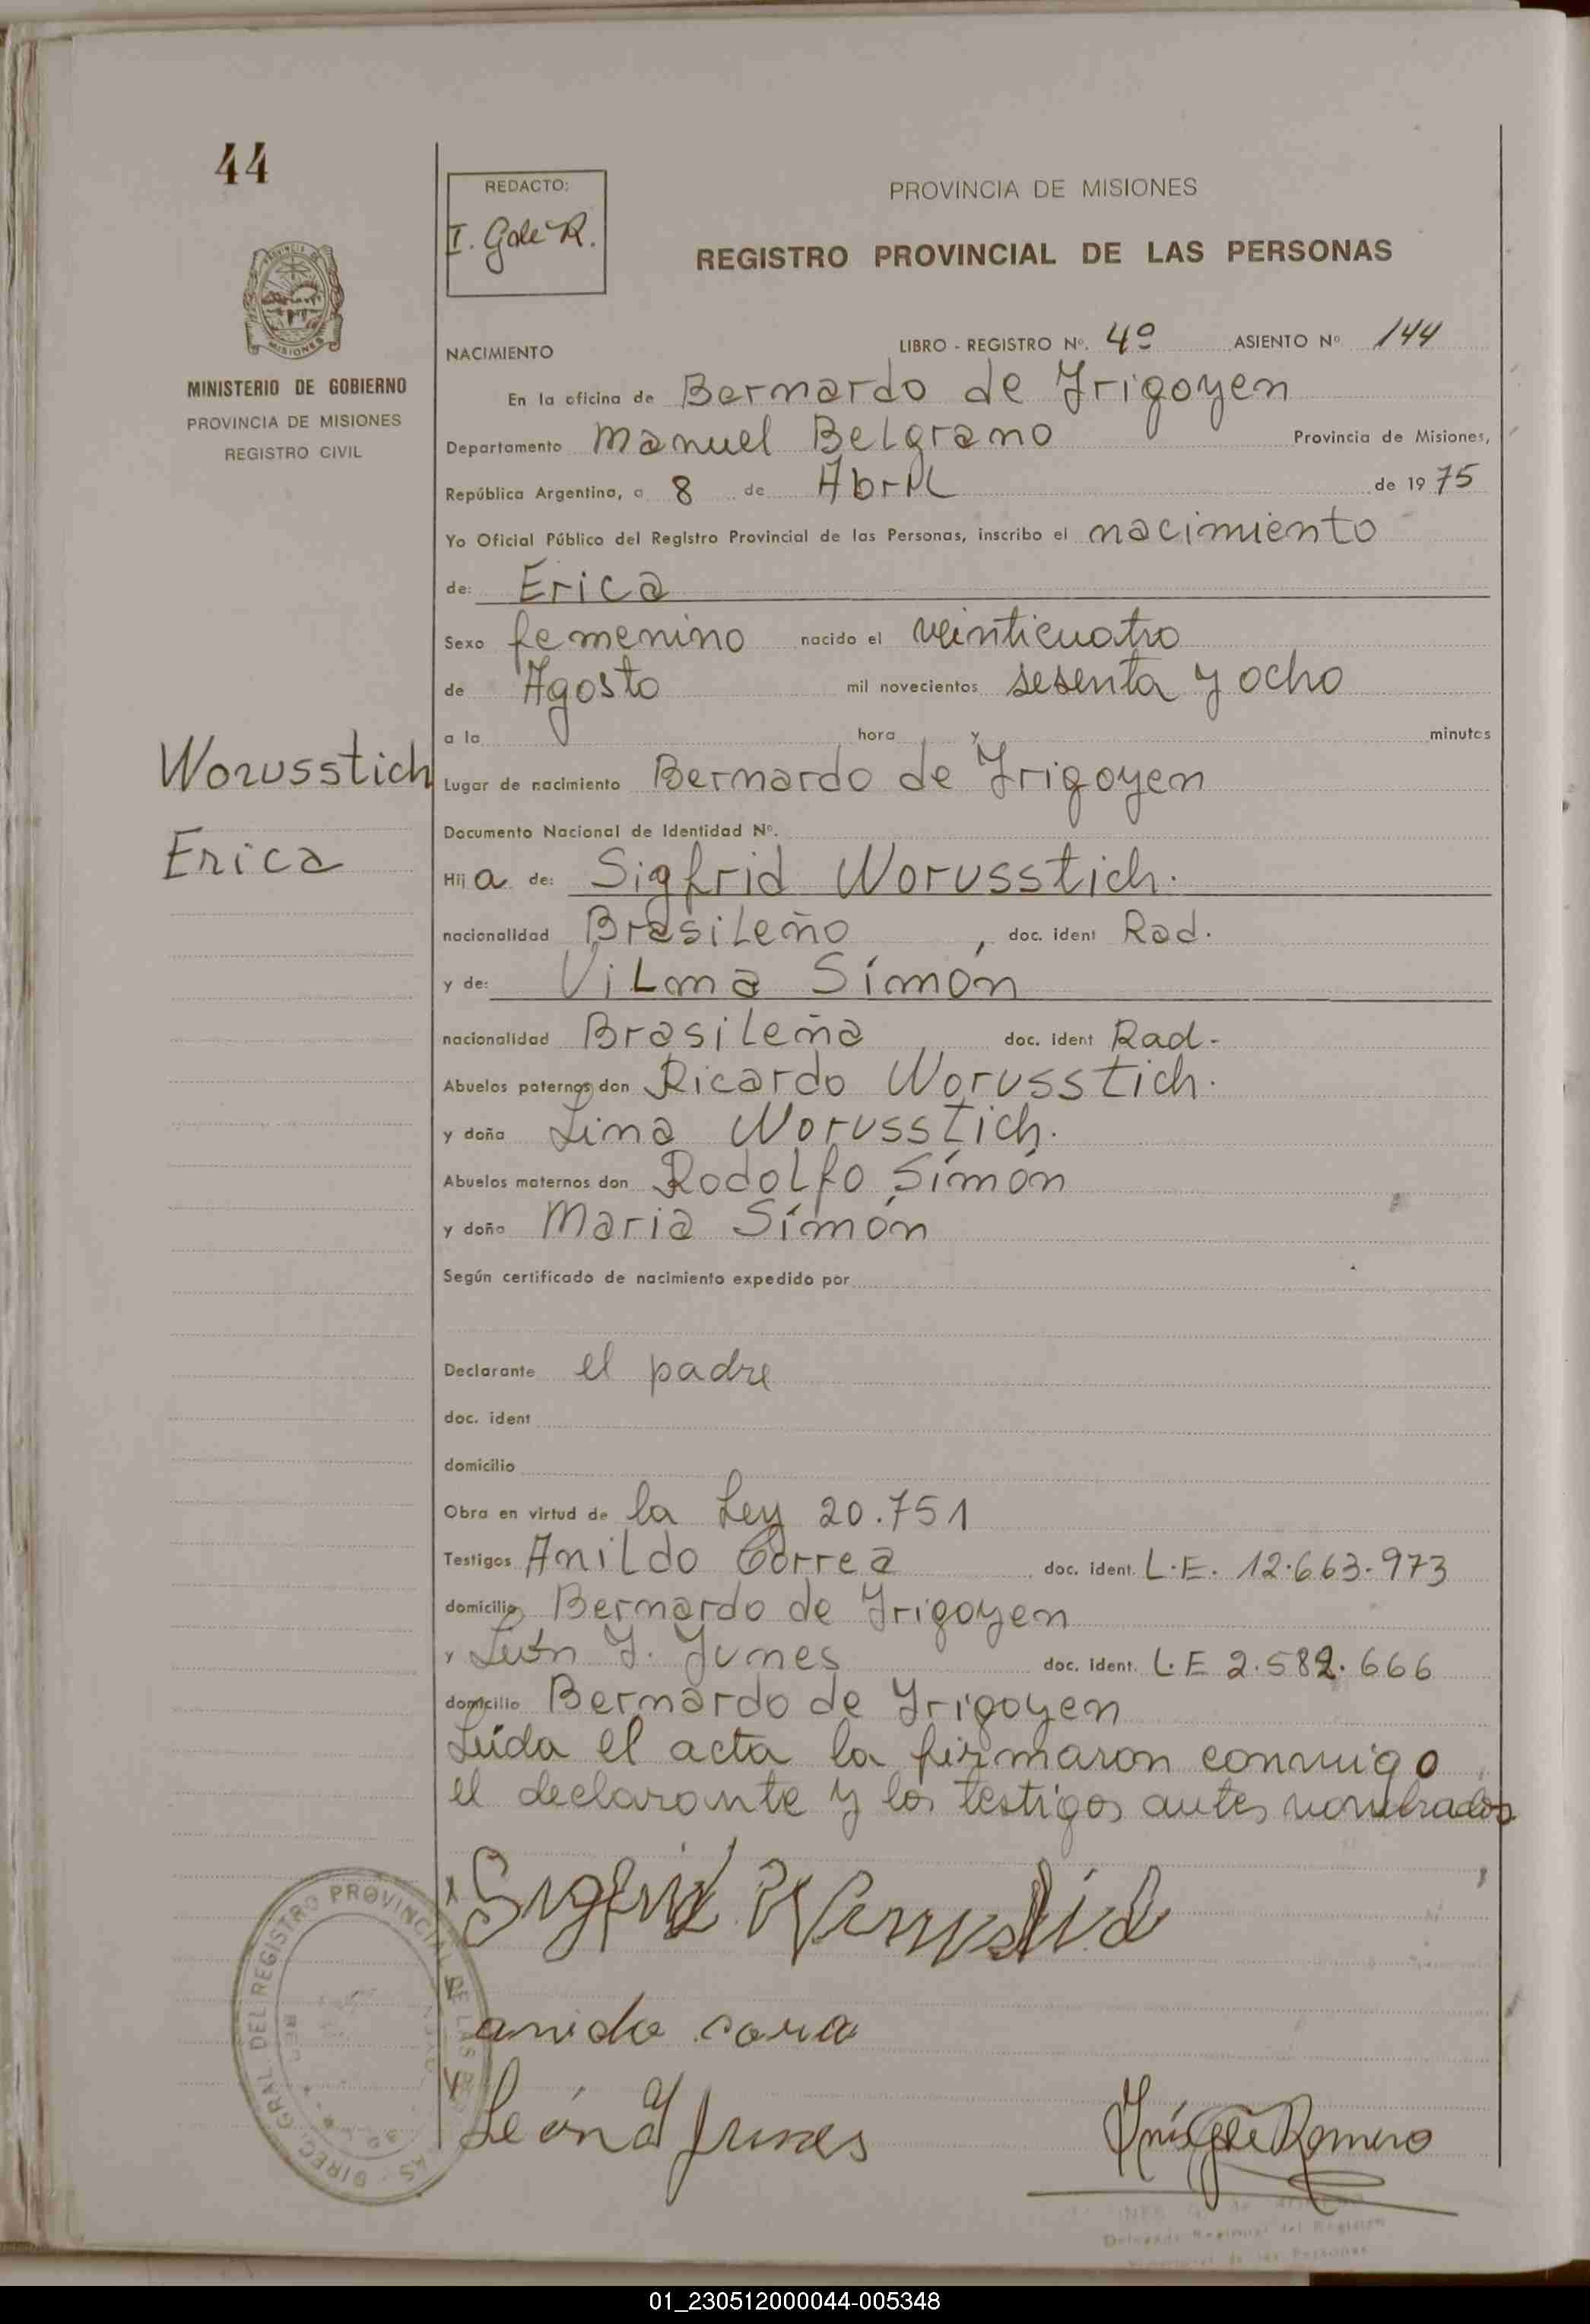 44
REDACTO:
I. Gale R.
PROVINCIA DE MISIONES
REGISTRO PROVINCIAL DE LAS PERSONAS
MISIONES
MINISTERIO DE GOBIERNO
PROVINCIA DE MISIONES
REGISTRO CIVIL
NACIMIENTO LIBRO - REGISTRO Nº. 4º ASIENTO Nº 144
En la oficina de Bernardo de Yrigoyen
Departamento Manuel Belgrano Provincia de Misiones,
República Argentina, a 8 de Abril de 1975
Yo Oficial Público del Registro Provincial de las Personas, inscribo el nacimiento
de: Erica
Sexo femenino nacido el veinticuatro
de Agosto mil novecientos sesenta y ocho
a la hora y minutos
Worusstich
Lugar de nacimiento Bernardo de Yrigoyen
Documento Nacional de Identidad Nº.
Erica
Hija de: Sigfrid Worusstich.
nacionalidad Brasileño, doc. ident Rad.
y de: Vilma Símón
nacionalidad Brasileña doc. ident Rad-
Abuelos paternos don Ricardo Worusstich.
y doña Lina Worusstich.
Abuelos maternos don Rodolfo Símón
y doña Maria Símón
Según certificado de nacimiento expedido por
Declarante el padre
doc. ident
domicilio
Obra en virtud de la Ley 20.751
Testigos Anildo Correa doc. ident. L.E. 12.663.973
domicilio Bernardo de Yrigoyen
y León Y. Junes doc. ident. L.E 2.582.666
domicilio Bernardo de Yrigoyen
Leída el acta la firmaron conmigo
el declarante y los testigos antes nombrados
Sigfrid Worusstich
anido cora
León Y Junes
Inés Gale Romero
DIREC. GRAL. DEL REGISTRO PROVINCIAL DE LAS
Delegada Regional del Registro
Provincial de las Personas
01_230512000044-005348